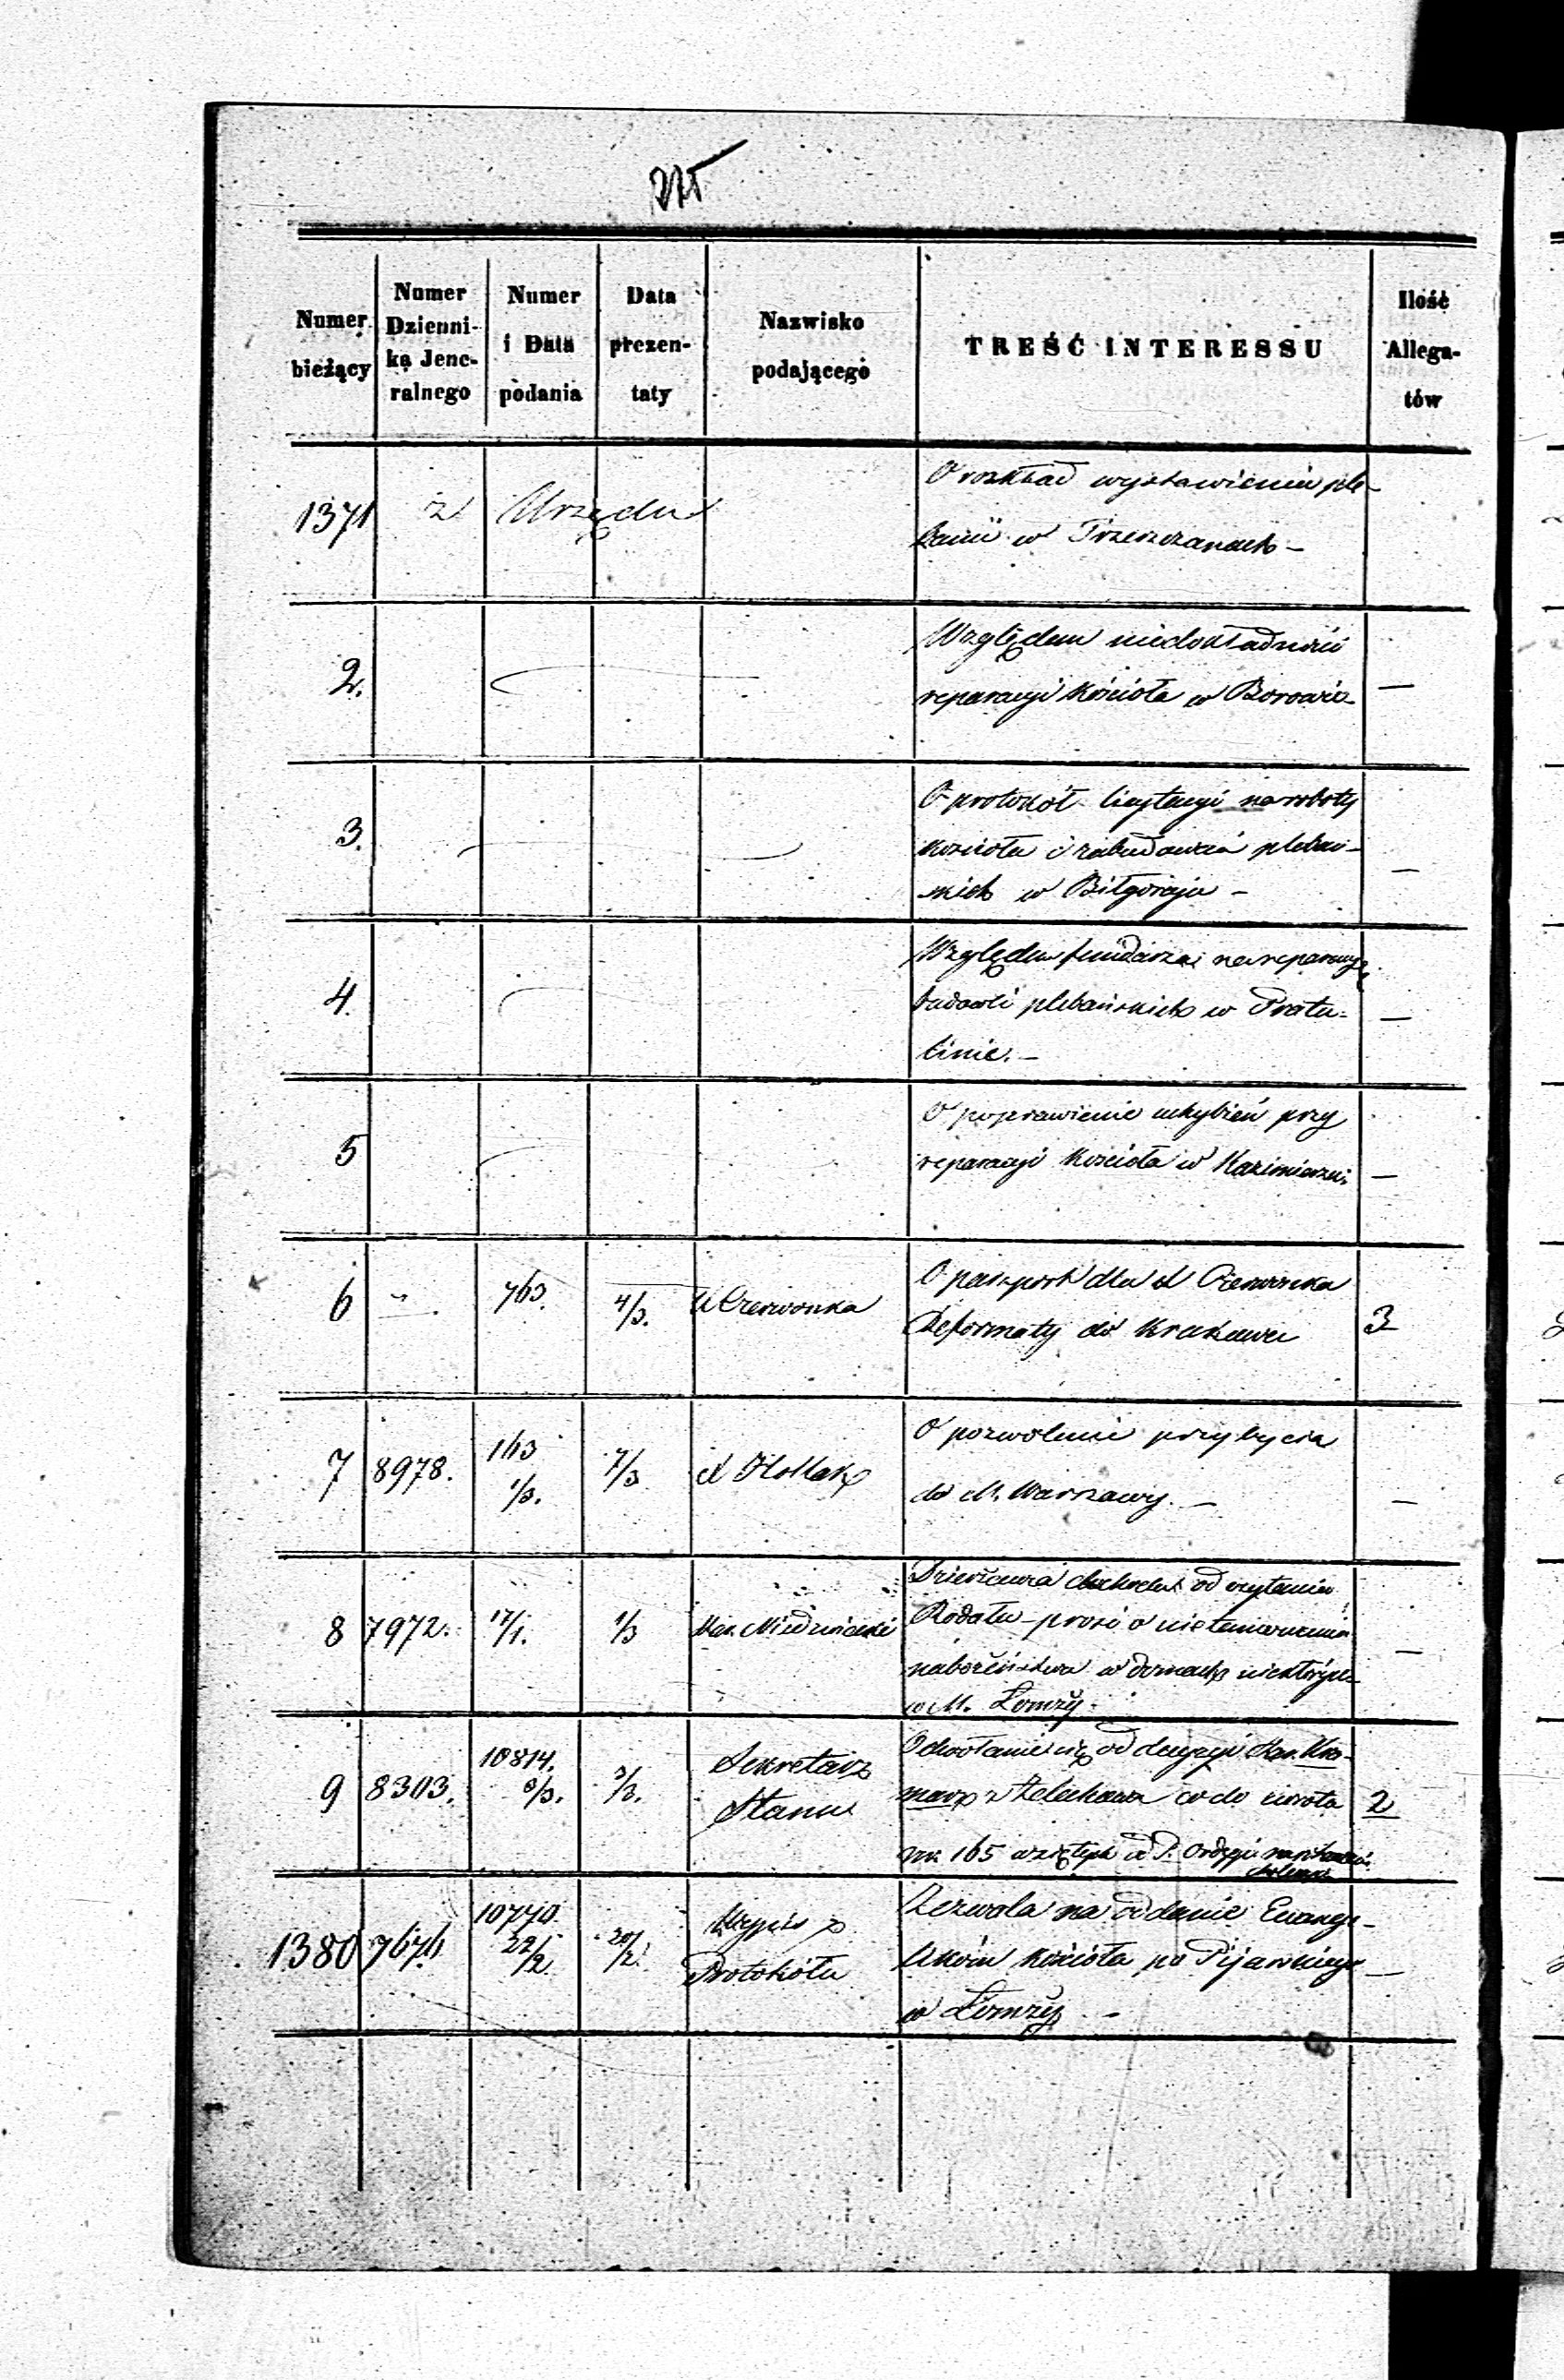 Numer bieżący
Numer Dzienni-ka Jene-ralnego
Numer i Data podania
Data prezen-taty
Nazwisko podającego
TREŚĆ INTERESSU
Ilość Allega-tów
1371 z Urzędu
O rozkład wystawienia ple-
banii w Trzeszczanach –
2.
Względem niedokładności
reparacyi Kościoła w Borowie –
3.
O protokół licytacyi na roboty
kościoła i zabudowań plebań-
skich w Biłgoraju –
–
4.
Względem funduszu na reparacyę
budowli plebańskich w Pratu-
linie. –
–
5
O poprawienie uchybień przy
reparacyi Kościoła w Kazimierzu.
–
6 763. 4/3. X Czerwonka
O paszport dla X Czerwonka
Reformaty do Krakowa
3
7 8978. 163 1/3. 7/3
O pozwolenie przybycia
do M. Warszawy. –
–
8 7972. 17/1. 1/3
od czytania
Rodału – prosi o
nabożeństwa w domach
w M. Łomży –
–
9 8303. 10814. 3/3. Sekretarz
Stanu
Odwołanie się od decyzyi
z Żelechowa co do
2
1380 10770 22/2 20/2. Wypis z
Protokółu
Zezwala na oddanie Ewange-
likom kościoła po Pijarskiego
w Łomży –
–